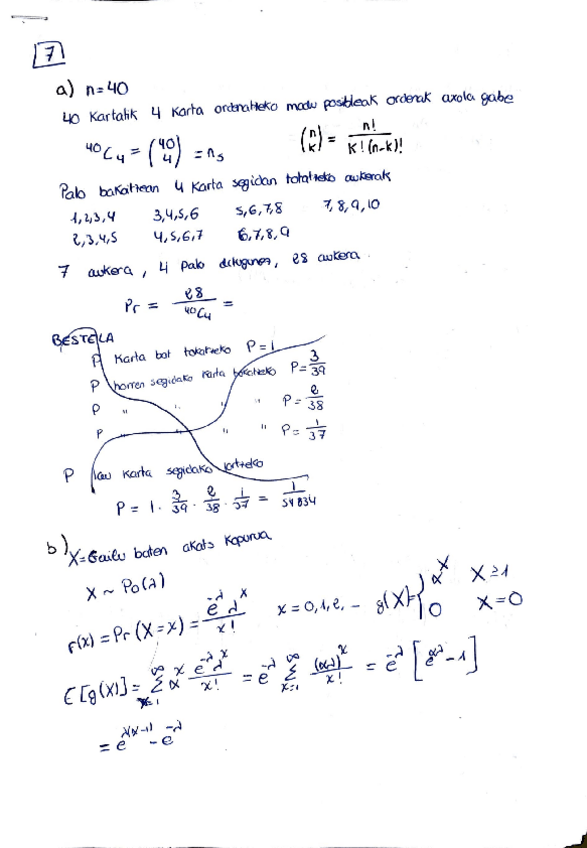 7
a) n=40
40 kartatik 4 karta ordenatzeko modu posibleak ordenak axola gabe
⁴⁰C₄ = (40 4) = nₛ (n k) = n! / k!(n-k)!
Palo bakoitzean 4 karta segidan tokatzeko aukerak
1,2,3,4 3,4,5,6 5,6,7,8 7,8,9,10
2,3,4,5 4,5,6,7 6,7,8,9
7 aukera, 4 palo ditugunez, 28 aukera.
Pr = 28 / ⁴⁰C₄ =
BESTELA
P karta bat tokatzeko P=1
P horren segidako karta tokatzeko P=3/39
P " " " " P=2/38
P " " " " P=1/37
P lau karta segidako
P = 1 · 3/39 · 2/38 · 1/37 = 1/54834
b) X=Gailu baten akats kopurua
X ~ Po(λ)
f(x) = Pr(X=x) = e^-λ λ^x / x! x=0,1,2,... g(X)= { α^X X≥1
0 X=0
E[g(X)] = Σ_{x=1}^∞ α^x e^-λ λ^x / x! = e^-λ Σ_{x=1}^∞ (αλ)^x / x! = e^-λ [e^αλ - 1]
= e^λ(α-1) - e^-λ